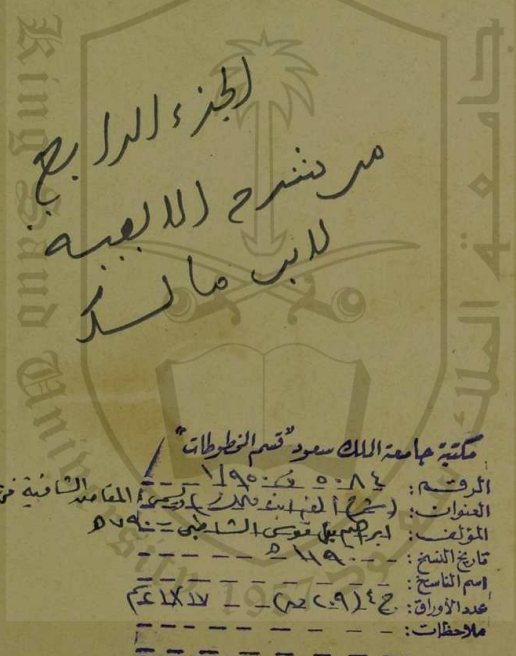 الجزء الرابع
من شرح الالفية
لابن مالك
مكتبة جامعة الملك سعود "قسم المخطوطات"
الرقم: ٥٠٨٤
العنوان: (شرح ألفية ابن مالك) المقاصد الشافية في
المؤلف: ابراهيم بن موسى الشاطبي - ٧٩٠ هـ
تاريخ النسخ: ١١٩٠ هـ
اسم الناسخ:
عدد الأوراق: ج٤ (٢٠٩)
ملاحظات:
King Saud University 1957
جامعة الملك